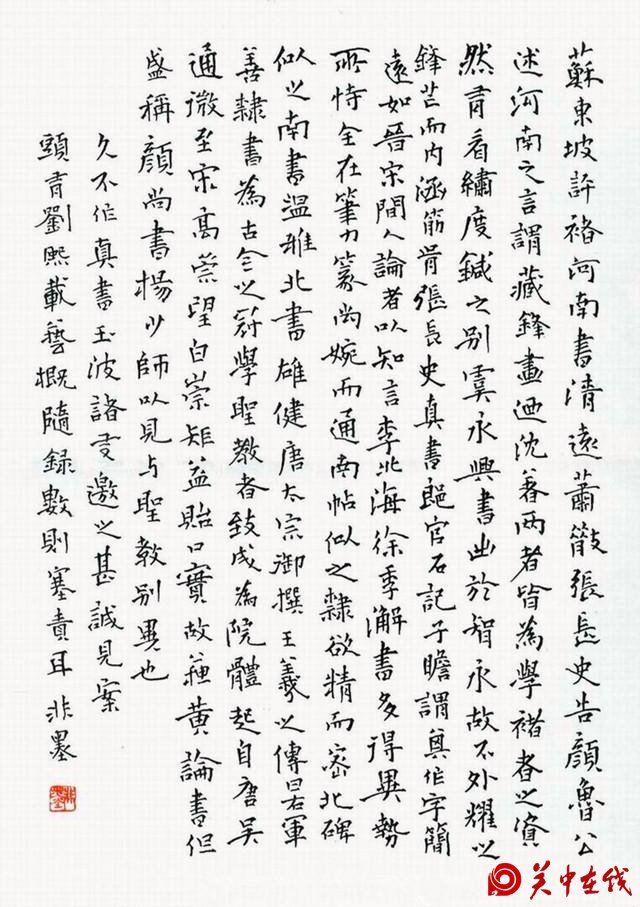 蘇東坡評褚河南書清遠蕭散張長史告顏魯公
述河南之言謂藏鋒畫迺沈著兩者皆為學褚者之資
然有看繡度鍼之別虞永興書出於智永故不外耀以
鋒芒而內涵筋骨張長史真書郎官石記子瞻謂其作字簡
遠如晉宋間人論者以知言李北海徐季海書多得異勢
所恃全在筆力篆尚婉而通南帖似之隸欲精而密北碑
似之南書溫雅北書雄健唐太宗御撰王羲之傳曰右軍
善隸書為古今之冠學聖教者致成為院體起自唐吳
通微至宋高崇望白崇矩益貽口實故蘇黃論書但
盛稱顏尚書楊少師以見与聖教別異也
久不作真書玉波諸受邀之甚誠見案
頭有劉熙載藝概隨錄數則塞責耳非墨
关中在线